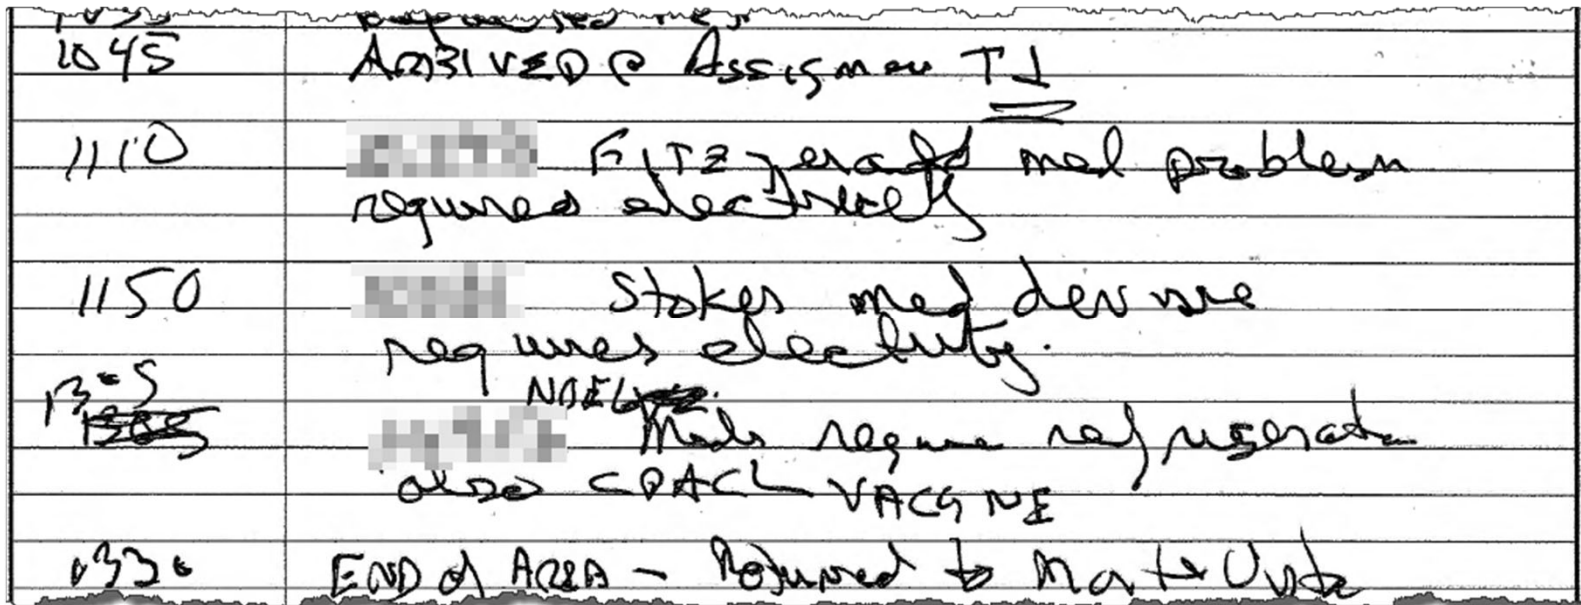 1045 ARRIVED @ Assignment T1
1110 Fitzgerald med problem
requires electricity
1150 Stokes med device
requires electricity.
1305 NOEL
Meds require refrigeration
also VACCINE
1330 END of AREA - Returned to Unit